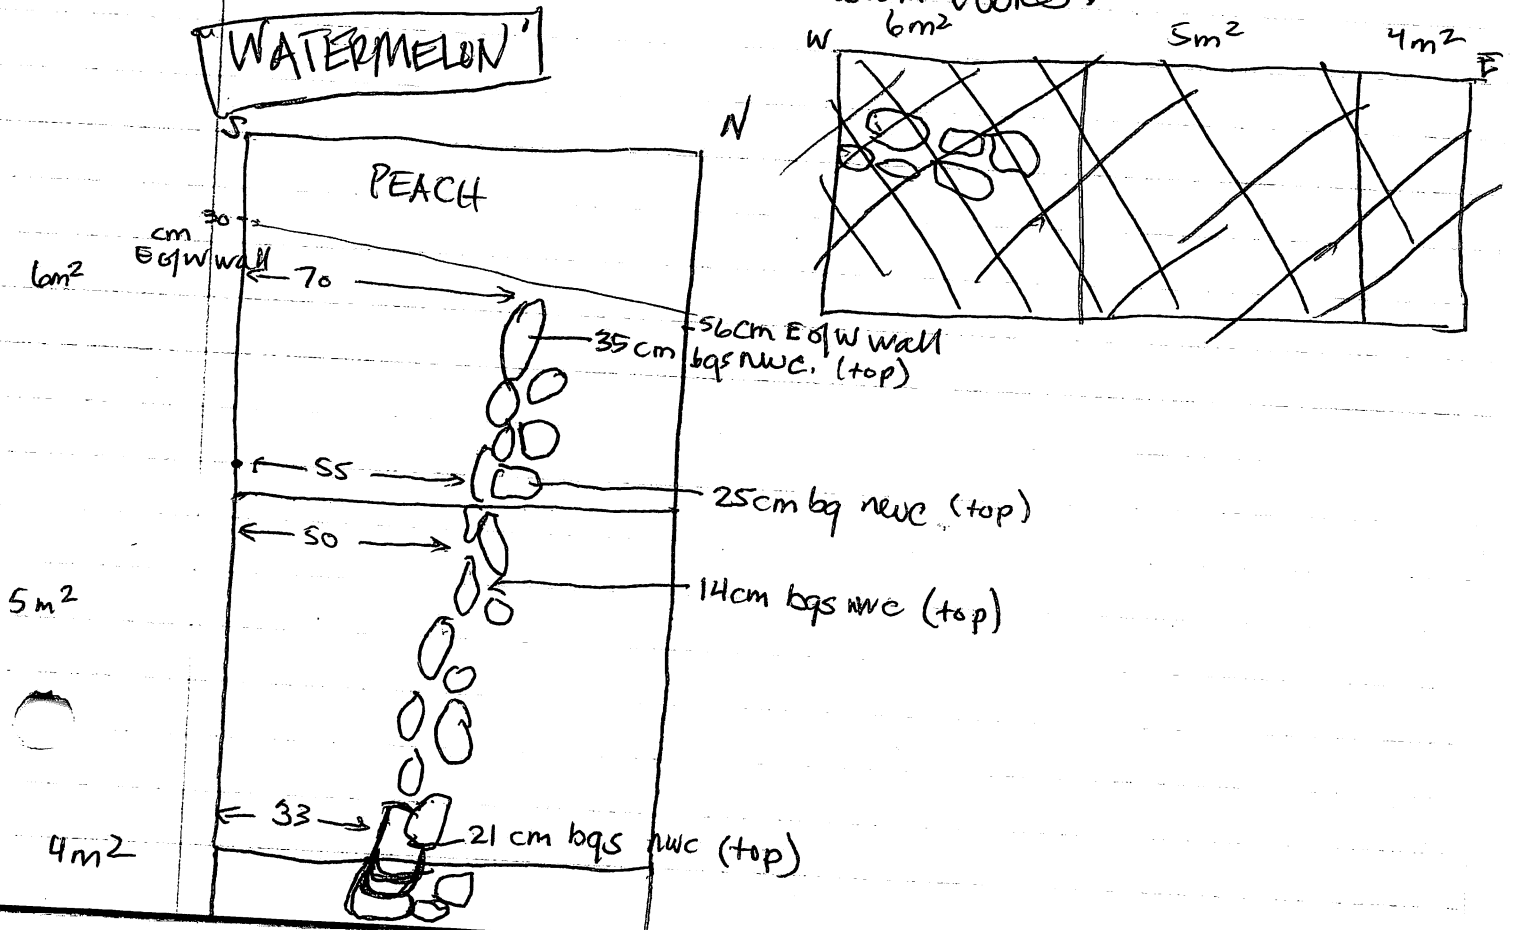 "WATERMELON"
6m²
5m²
4m²
W
E
S
N
PEACH
30
cm
E of W wall
6m²
70
56cm E of W wall
35cm bgs nwc. (top)
55
25cm bg nwc (top)
50
14cm bgs nwc (top)
5m²
33
21 cm bgs nwc (top)
4m²